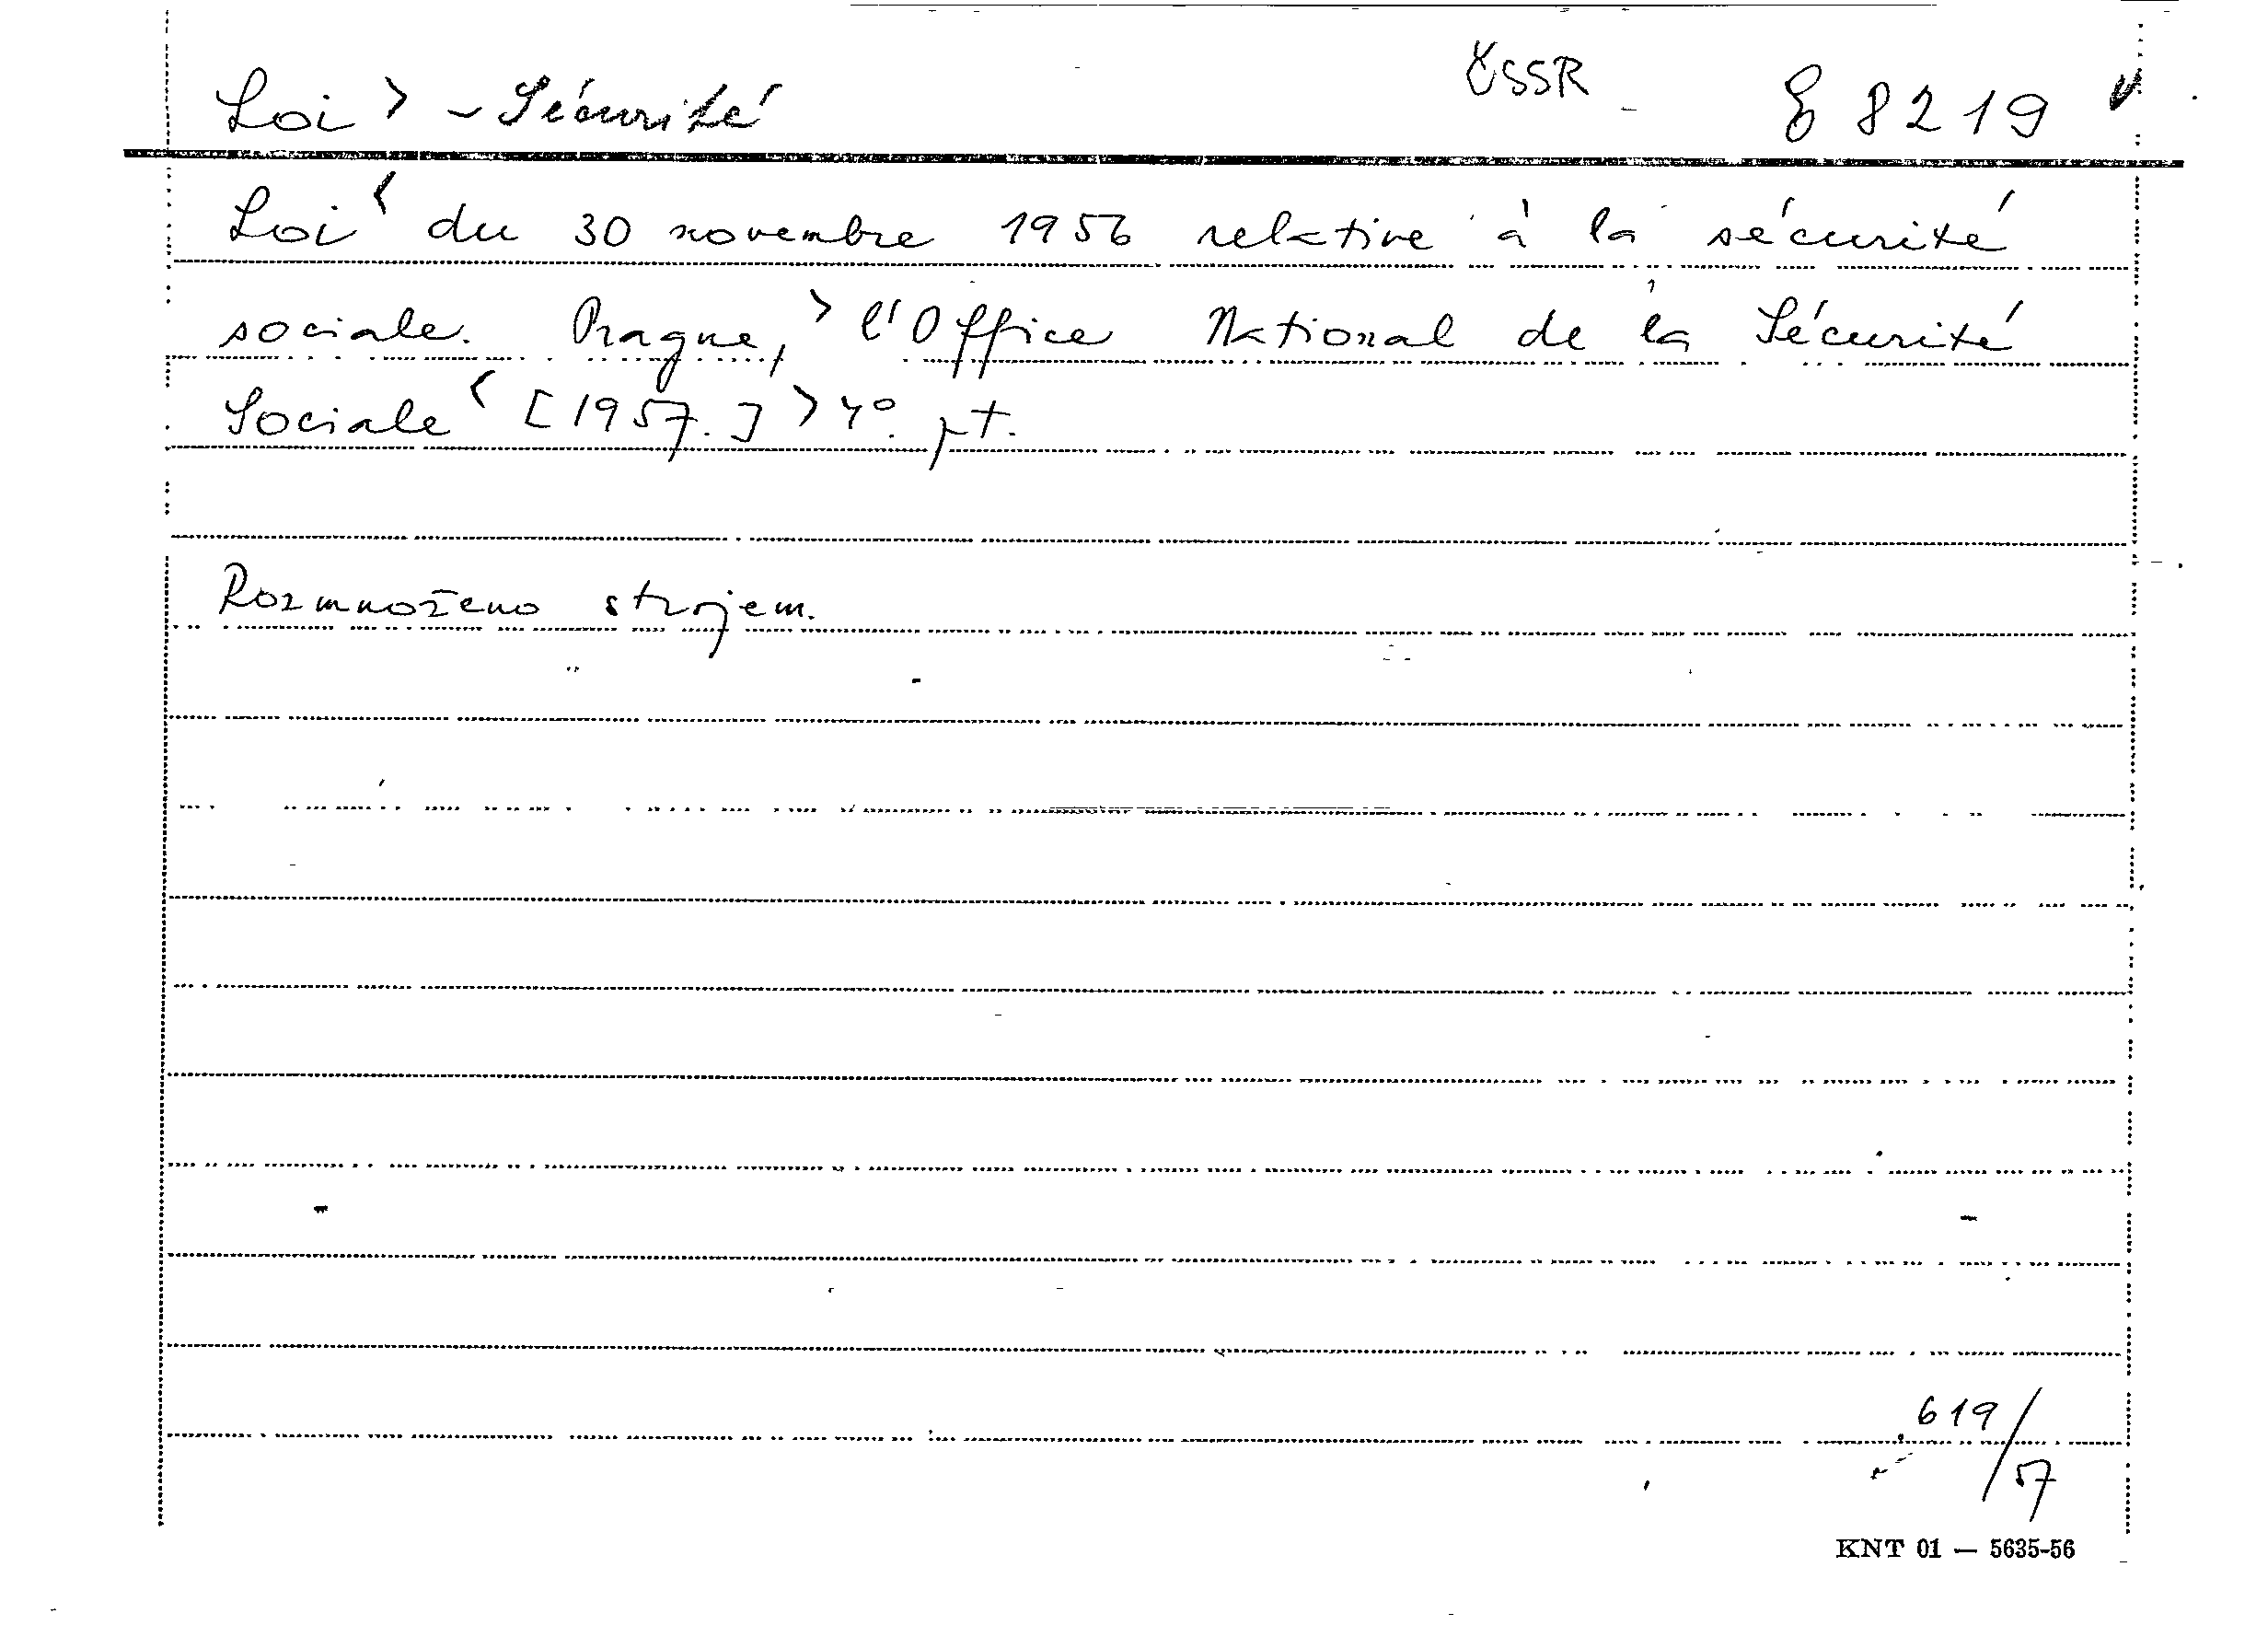 ČSSR
Loi > - Sécurité E 8219
Loi < du 30 novembre 1956 relative à la sécurité
sociale. Prague, > l'Office National de la Sécurité
Sociale < [1957.] > 4°. pt.
Rozmnoženo strojem.
619/57
KNT 01 — 5635-56